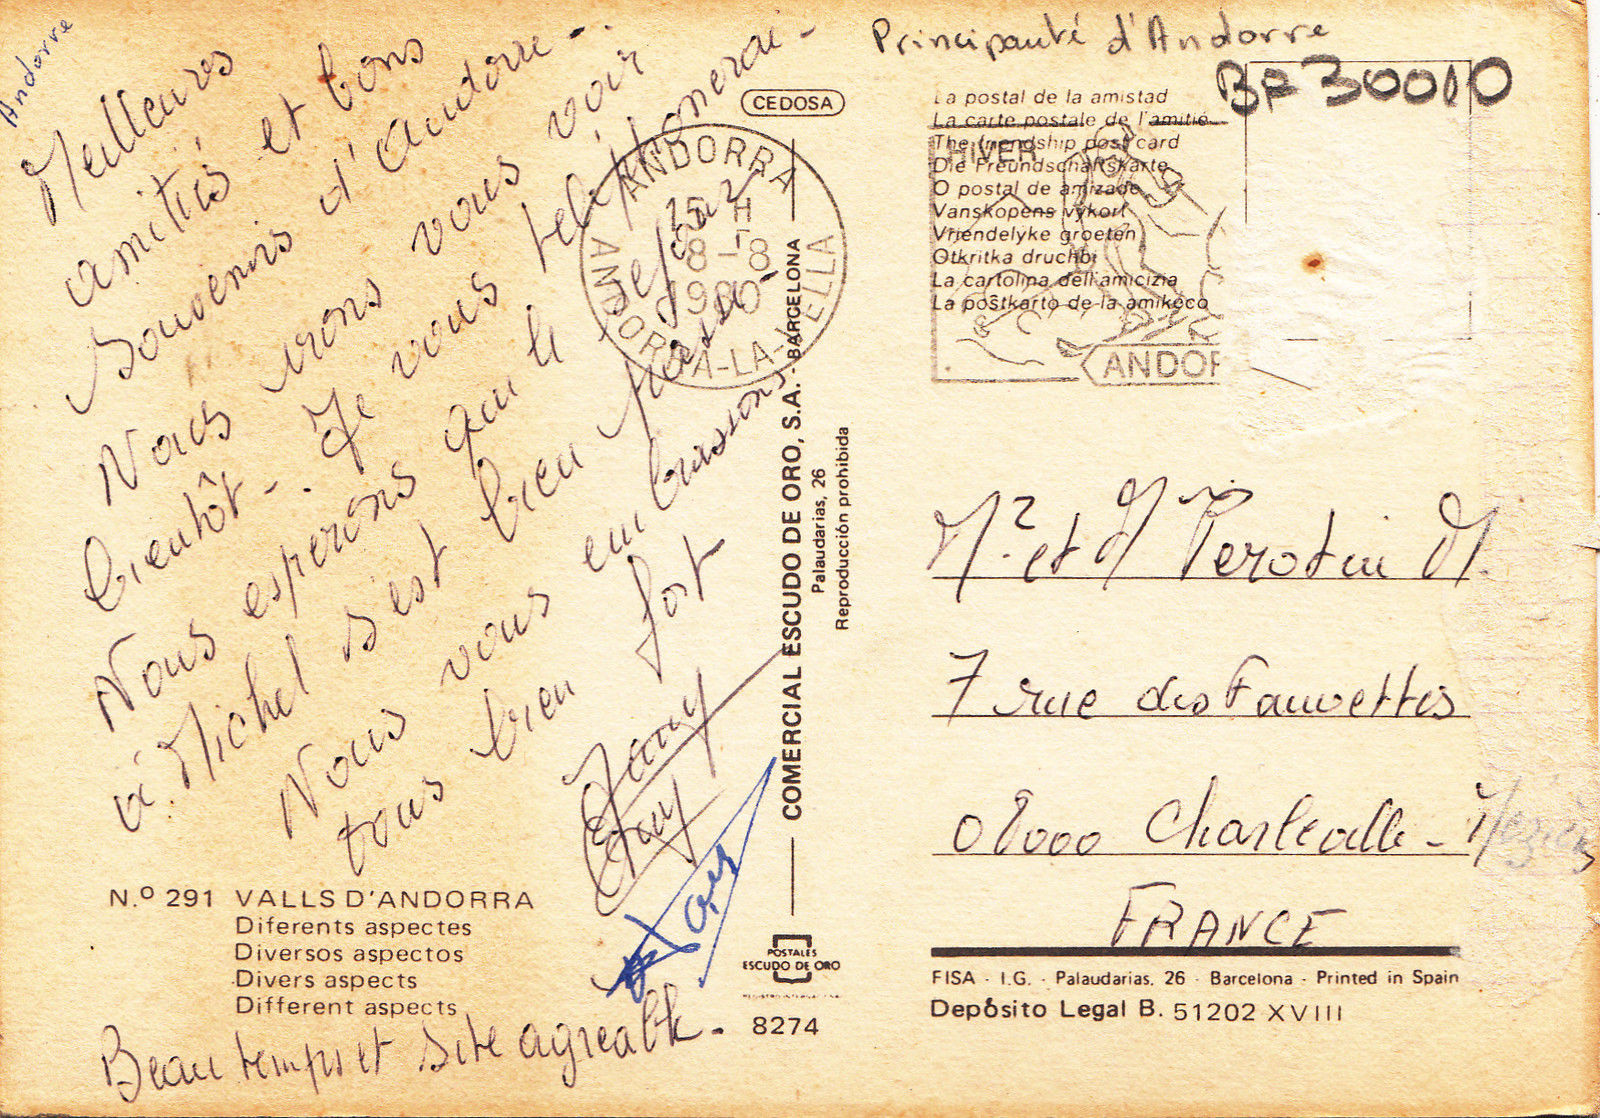 Andorre
Meilleures
amitiés et bons
Souvenirs d'Andorre -.
Nous irons vous voir
bientôt -. Je vous téléphonerai -
Nous esperons que le sejour
à Michel s'est bien passé.
Nous vous embrassons
tous bien fort
Beau temps et site agreable -
N.º 291 VALLS D'ANDORRA
Diferents aspectes
Diversos aspectos
Divers aspects
Different aspects
CEDOSA
ANDORRA
15 H
8 - 8
1980
ANDORRA-LA-VELLA
COMERCIAL ESCUDO DE ORO, S.A. - BARCELONA
Palaudarias, 26
Reproducción prohibida
POSTALES
ESCUDO DE ORO
8274
Principauté d'Andorre
BF 30010
La postal de la amistad
La carte postale de l'amitié
The friendship post card
Die Freundschaftskarte
O postal de amizade
Vanskopens vykort
Vriendelyke groeten
Otkritka druchbi
La cartolina dell'amicizia
La postkarto de la amikeco
HIVER
ANDOR
Mr. et M Perotin M.
7 rue des Fauvettes
08000 Charleville - Mézières
FRANCE
FISA - I.G. - Palaudarias, 26 - Barcelona - Printed in Spain
Depósito Legal B. 51202 XVIII